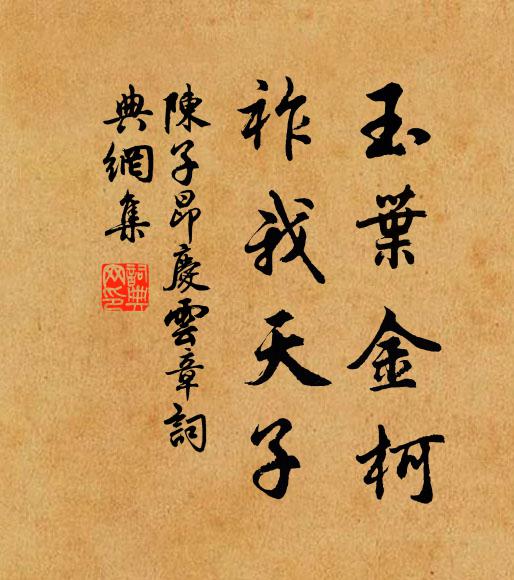 玉葉金柯
祚我天子
陳子昂慶雲章詞
典網集
詞典網印